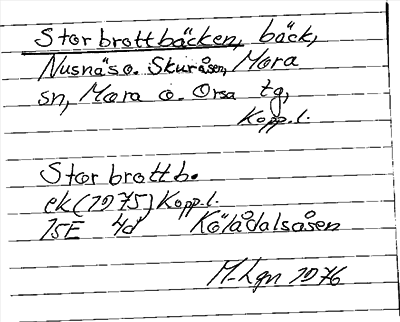 Storbrottbäcken, bäck,
Nusnäs o. Skuråsen, Mora
sn, Mora o. Orsa tg,
Kopp.l.
Storbrottb.
ek (1975) Kopp.l.
15E 4d Kölådalsåsen
M-Lgn 1976